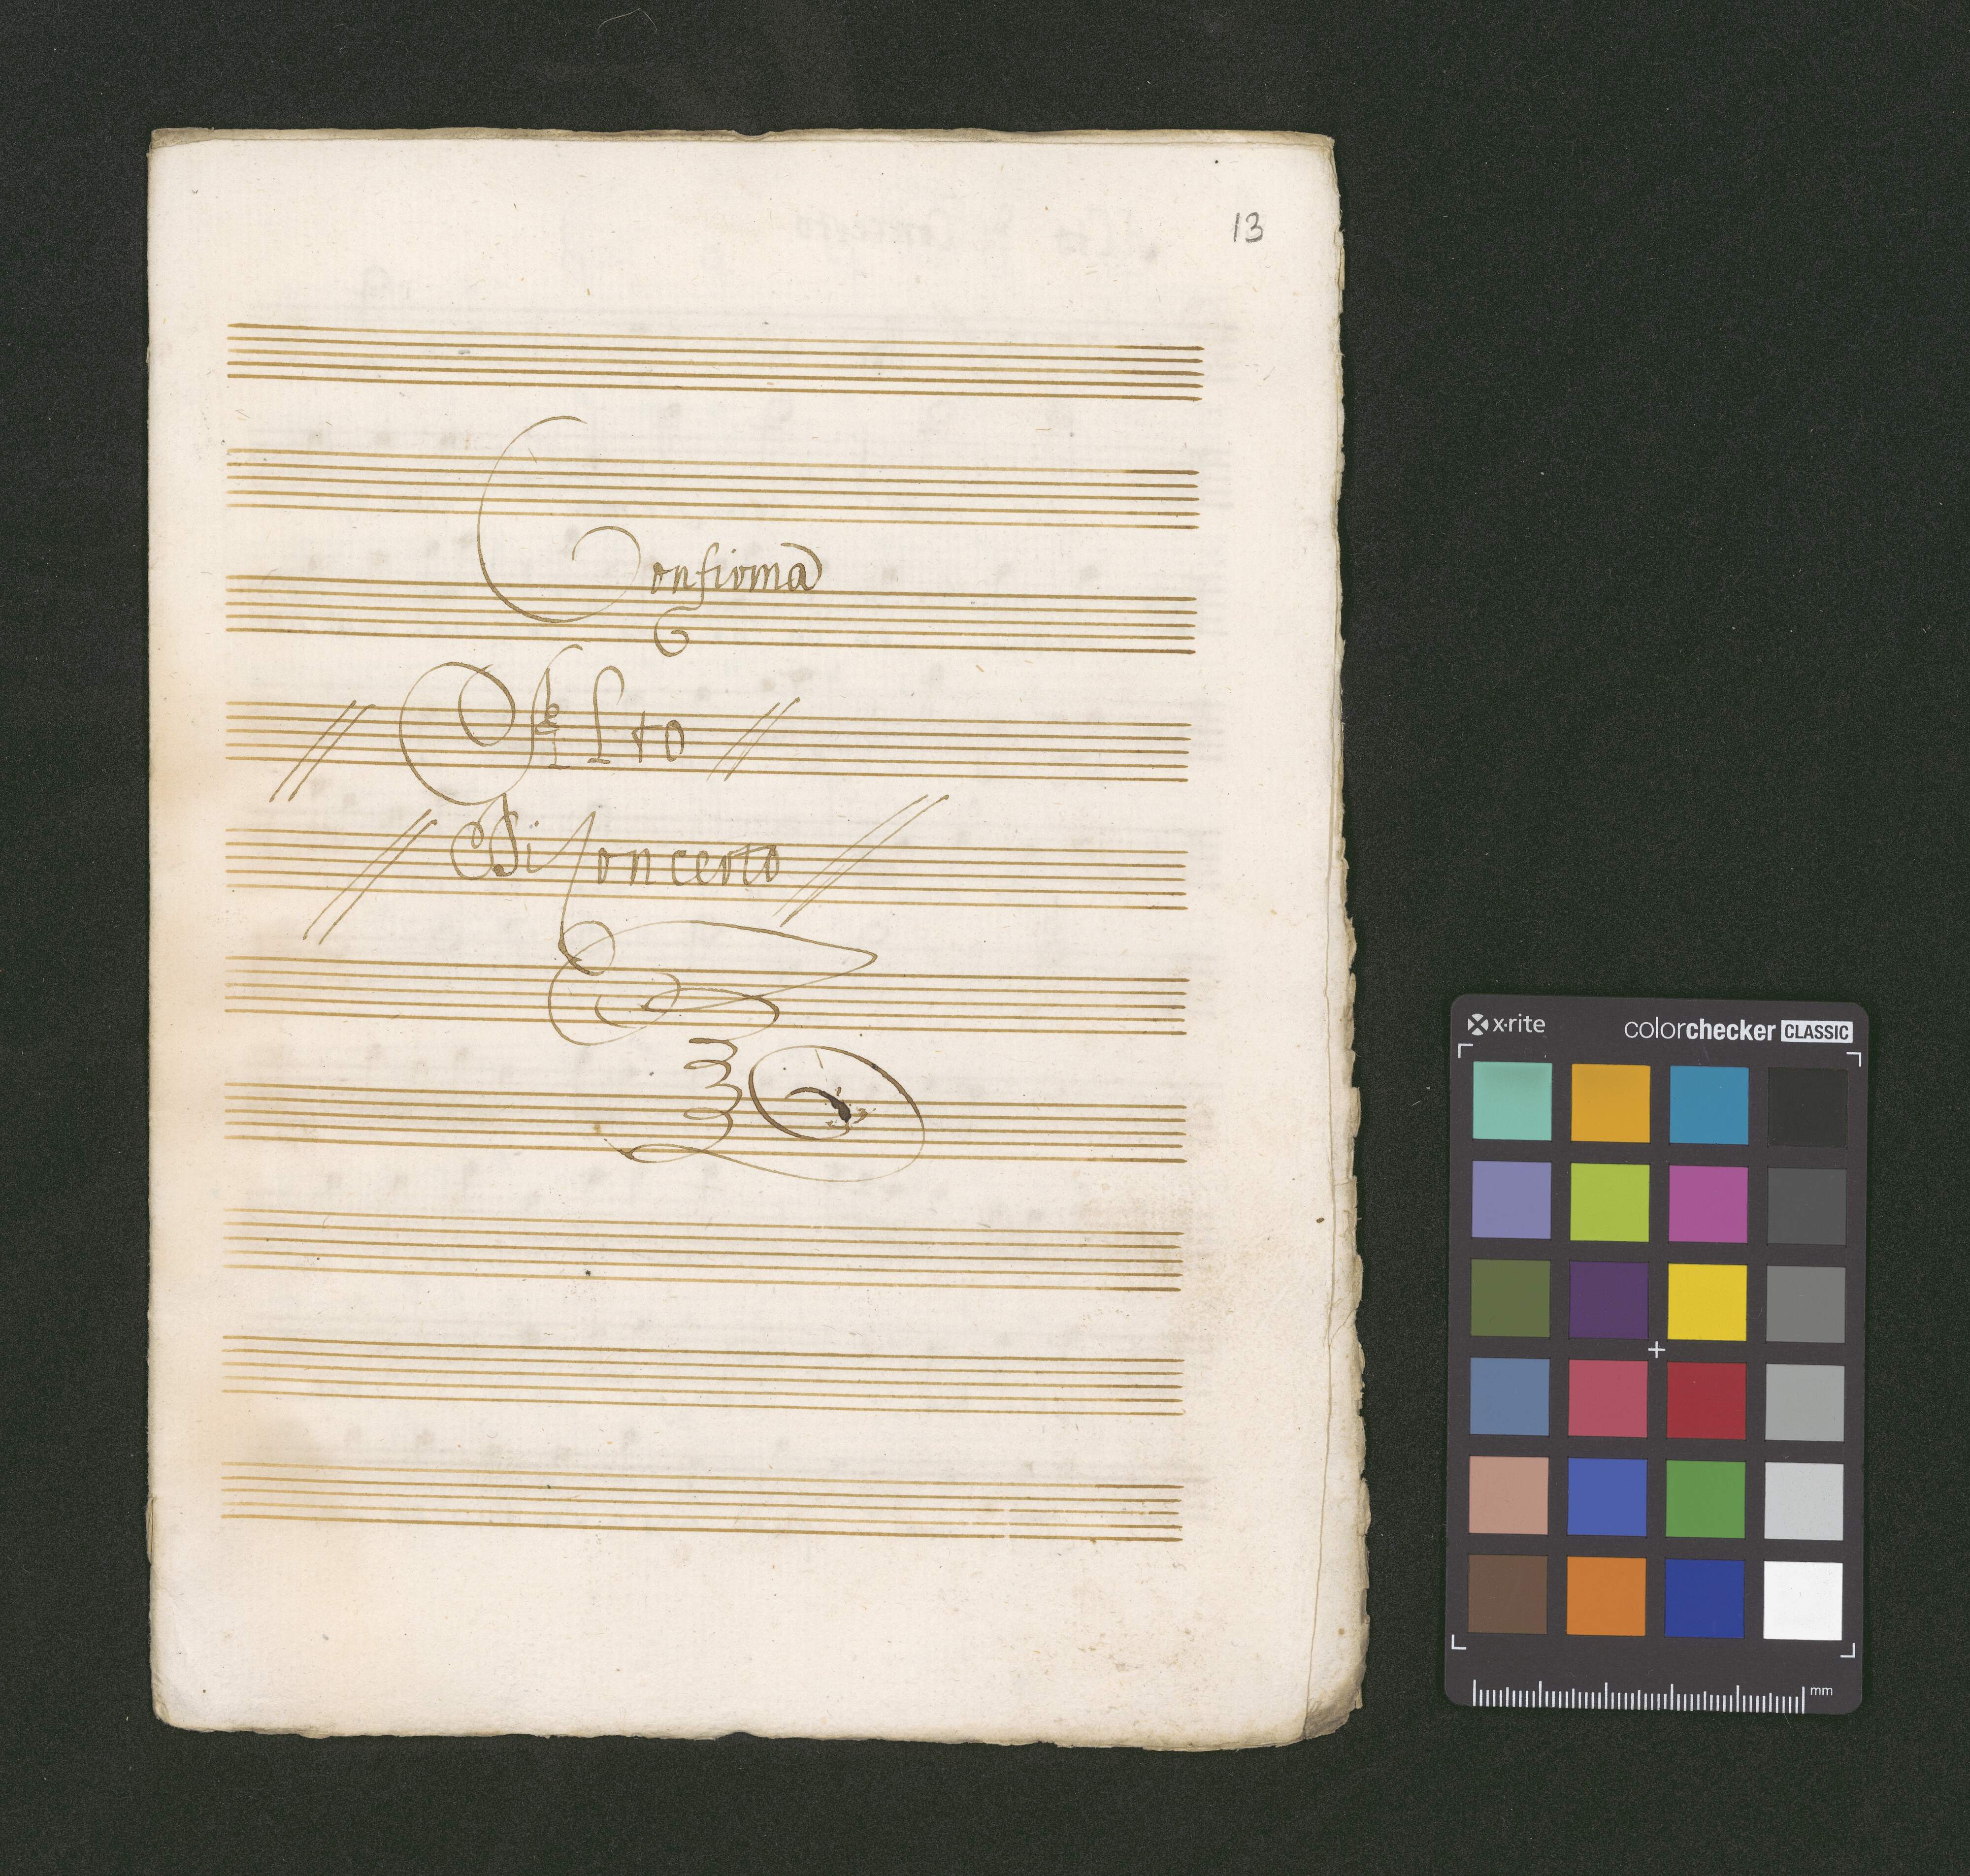 13
Confirma
// Alto //
// Di Concerto //
x·rite colorchecker CLASSIC
mm